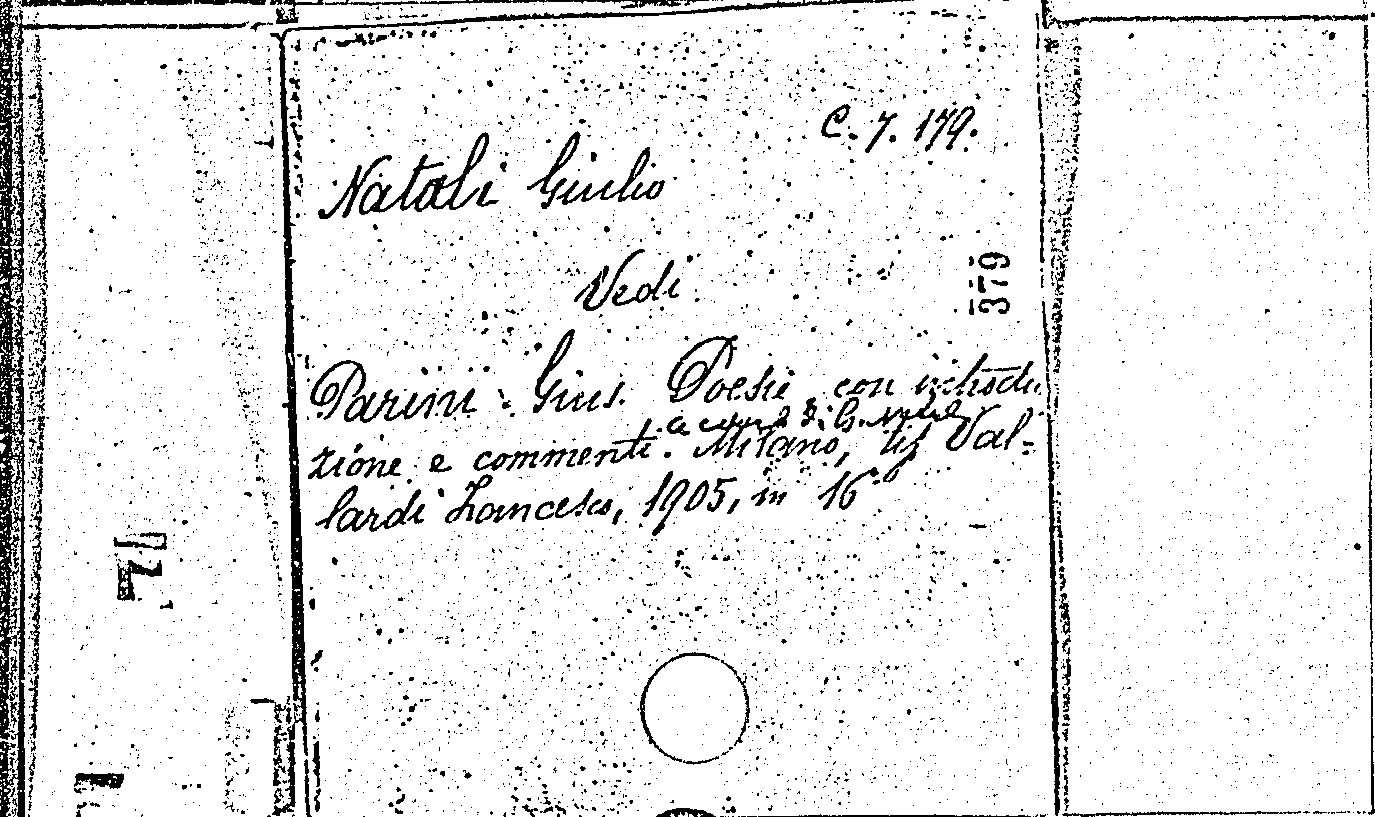 C. 7. 179.
Natali Giulio
Vedi
379
Parini Gius. Poesie, con introdu
a cura di G.
zione e commenti. Milano, tip Val-
lardi Francesco, 1905, in 16°